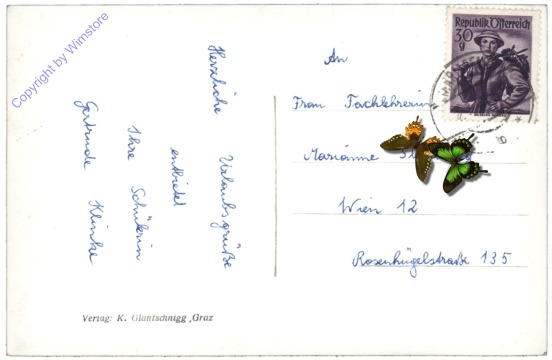 Copyright by Wimstore
Herzliche Urlaubsgrüße
entbietet
Ihre Schülerin
Gertrude Klinke
An
Frau Fachlehrerin
Marianne
Wien 12
Rosenhügelstraße 135
REPUBLIK ÖSTERREICH
30
g
Verlag: K. Glantschnigg, Graz